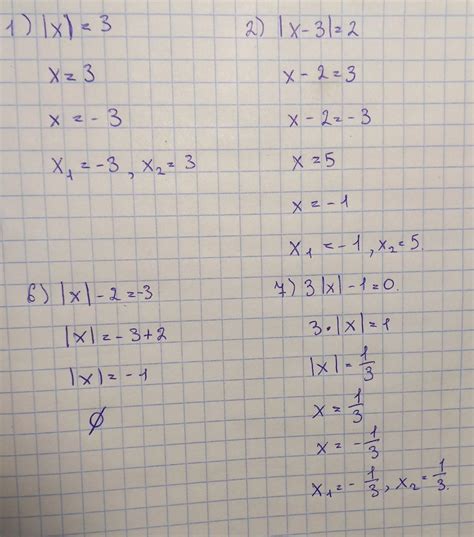 1) |x| = 3
x = 3
x = - 3
x₁ = -3 , x₂ = 3
2) |x - 3| = 2
x - 2 = 3
x - 2 = -3
x = 5
x = -1
x₁ = -1 , x₂ = 5.
6) |x| - 2 = -3
|x| = - 3 + 2
|x| = - 1
∅
7) 3|x| - 1 = 0.
3 · |x| = 1
|x| = 1/3
x = 1/3
x = - 1/3
x₁ = - 1/3 , x₂ = 1/3.